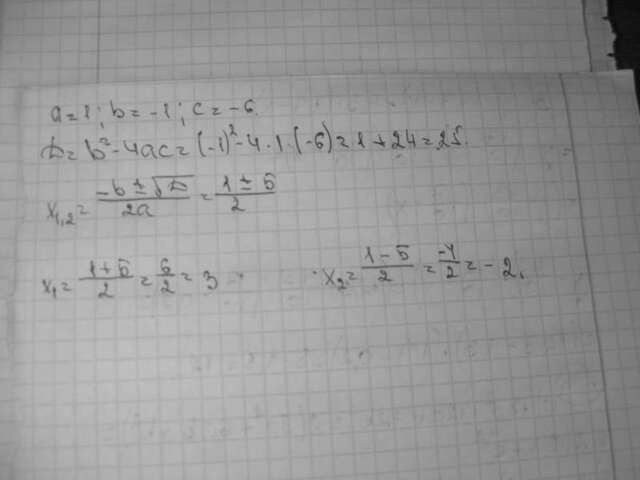 a = 1; b = -1; c = -6.
D = b² - 4ac = (-1)² - 4·1·(-6) = 1 + 24 = 25.
x₁,₂ = (-b ± √D)/(2a) = (1 ± 5)/2
x₁ = (1+5)/2 = 6/2 = 3
x₂ = (1-5)/2 = -4/2 = -2.